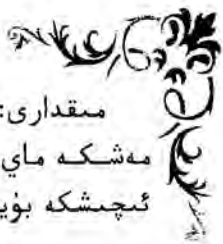 مىقدارى:
مەشكە ماي
ئىچىشكە بۇي